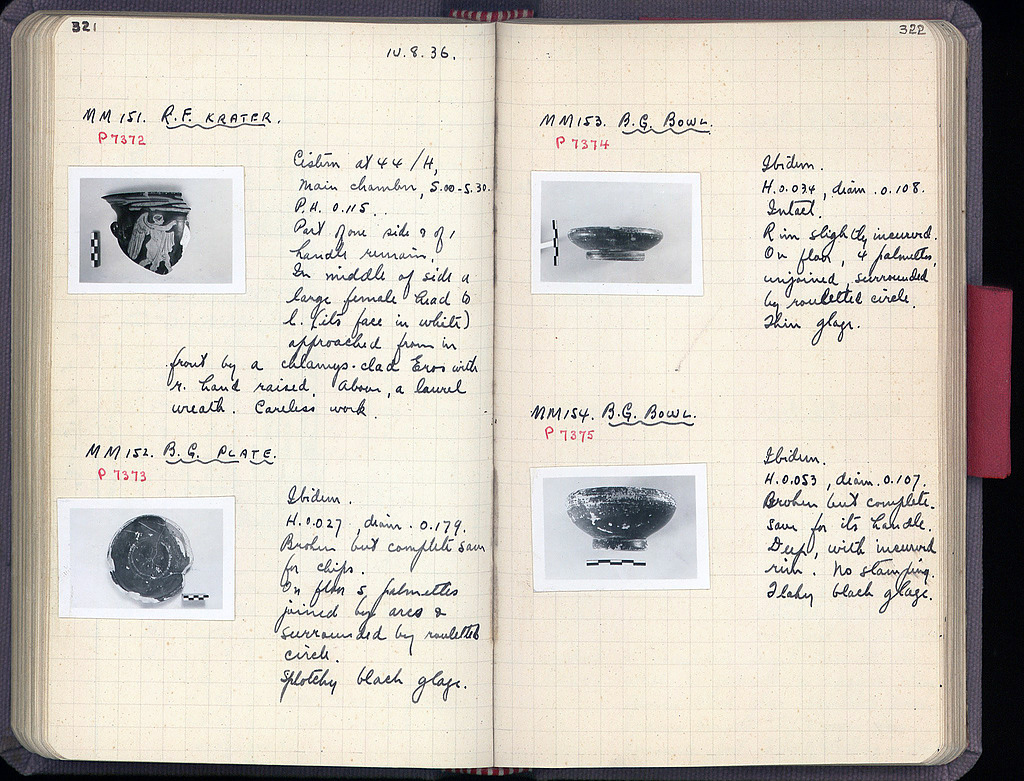 321
10.8.36.
MM151. R.F. KRATER.
P 7372
Cistern at 44/H,
main chamber, 5.00-5.30.
P.H. 0.115.
Part of one side & of 1
handle remain.
In middle of side a
large female head to
l. (its face in white)
approached from in
front by a chlamys-clad Eros with
r. hand raised. Above, a laurel
wreath. Careless work.
MM152. B.G. PLATE.
P 7373
Ibidem.
H. 0.027, diam. 0.179.
Broken but complete save
for chips.
On floor 5 palmettes
joined by arcs &
surrounded by rouletted
circle.
Splotchy black glaze.
322
MM153. B.G. BOWL.
P 7374
Ibidem.
H. 0.034, diam. 0.108.
Intact.
Rim slightly incurved.
On floor, 4 palmettes,
unjoined, surrounded
by rouletted circle.
Thin glaze.
MM154. B.G. BOWL.
P 7375
Ibidem.
H. 0.053, diam. 0.107.
Broken but complete
save for its handle.
Deep, with incurved
rim. No stamping.
Flaky black glaze.